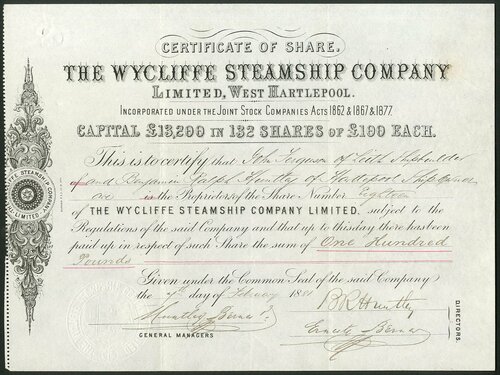 CERTIFICATE OF SHARE.
THE WYCLIFFE STEAMSHIP COMPANY
LIMITED, WEST HARTLEPOOL.
INCORPORATED UNDER THE JOINT STOCK COMPANIES ACTS 1862 & 1867 & 1877.
CAPITAL £13,200 IN 132 SHARES OF £100 EACH.
This is to certify that John Ferguson of Leith Shipbuilder
and Benjamin Ralph Huntley of Hartlepool Shipowner
are is the Proprietor of the Share Number Eighteen
of THE WYCLIFFE STEAMSHIP COMPANY LIMITED, subject to the
Regulations of the said Company and that up to this day there has been
paid up in respect of such Share the sum of One Hundred
Pounds
Given under the Common Seal of the said Company
the day of February 1881
B R Huntley
Huntley Berner
Ernest Berner
GENERAL MANAGERS
DIRECTORS.
THE WYCLIFFE STEAMSHIP COMPANY LIMITED